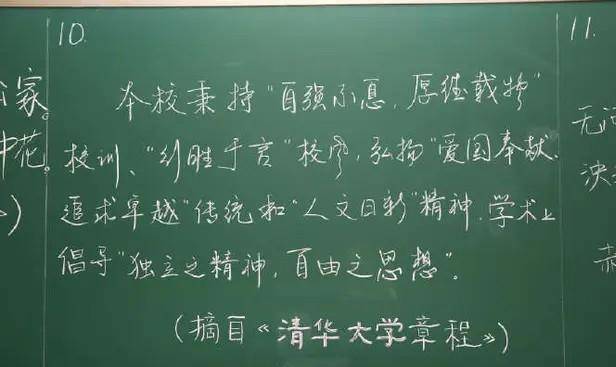 10.
本校秉持“自强不息、厚德载物”
校训、“行胜于言”校风，弘扬“爱国奉献、
追求卓越”传统和“人文日新”精神，学术上
倡导“独立之精神，自由之思想”。
（摘自《清华大学章程》）
家。
中花。
）
11.
无
泱